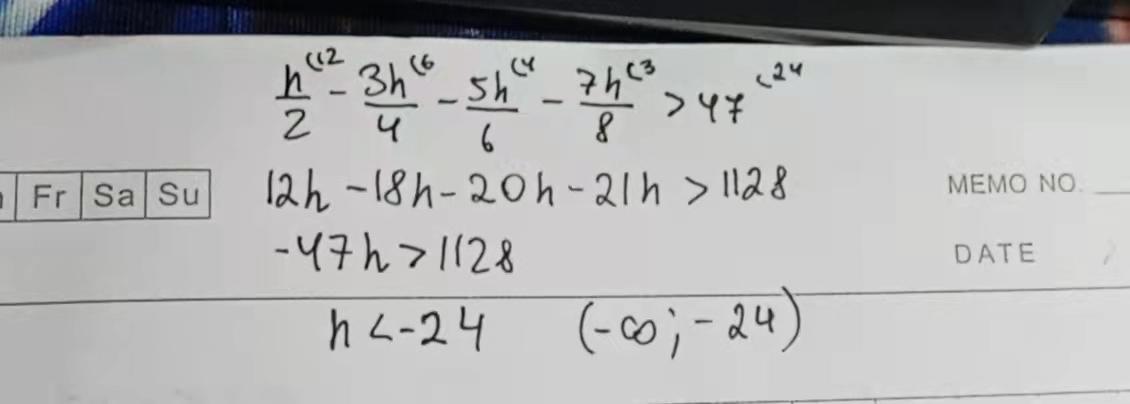 h⁽¹²/2 - 3h⁽⁶/4 - 5h⁽⁴/6 - 7h⁽³/8 > 47⁽²⁴
Fr Sa Su 12h - 18h - 20h - 21h > 1128 MEMO NO.
-47h > 1128 DATE
h < -24 (-∞; -24)